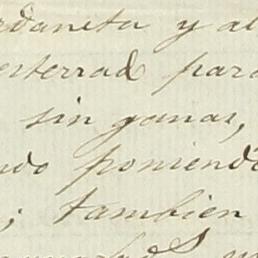 rdaneta y al
esterrad para
sin ganas,
ndo poniendo
; tambien